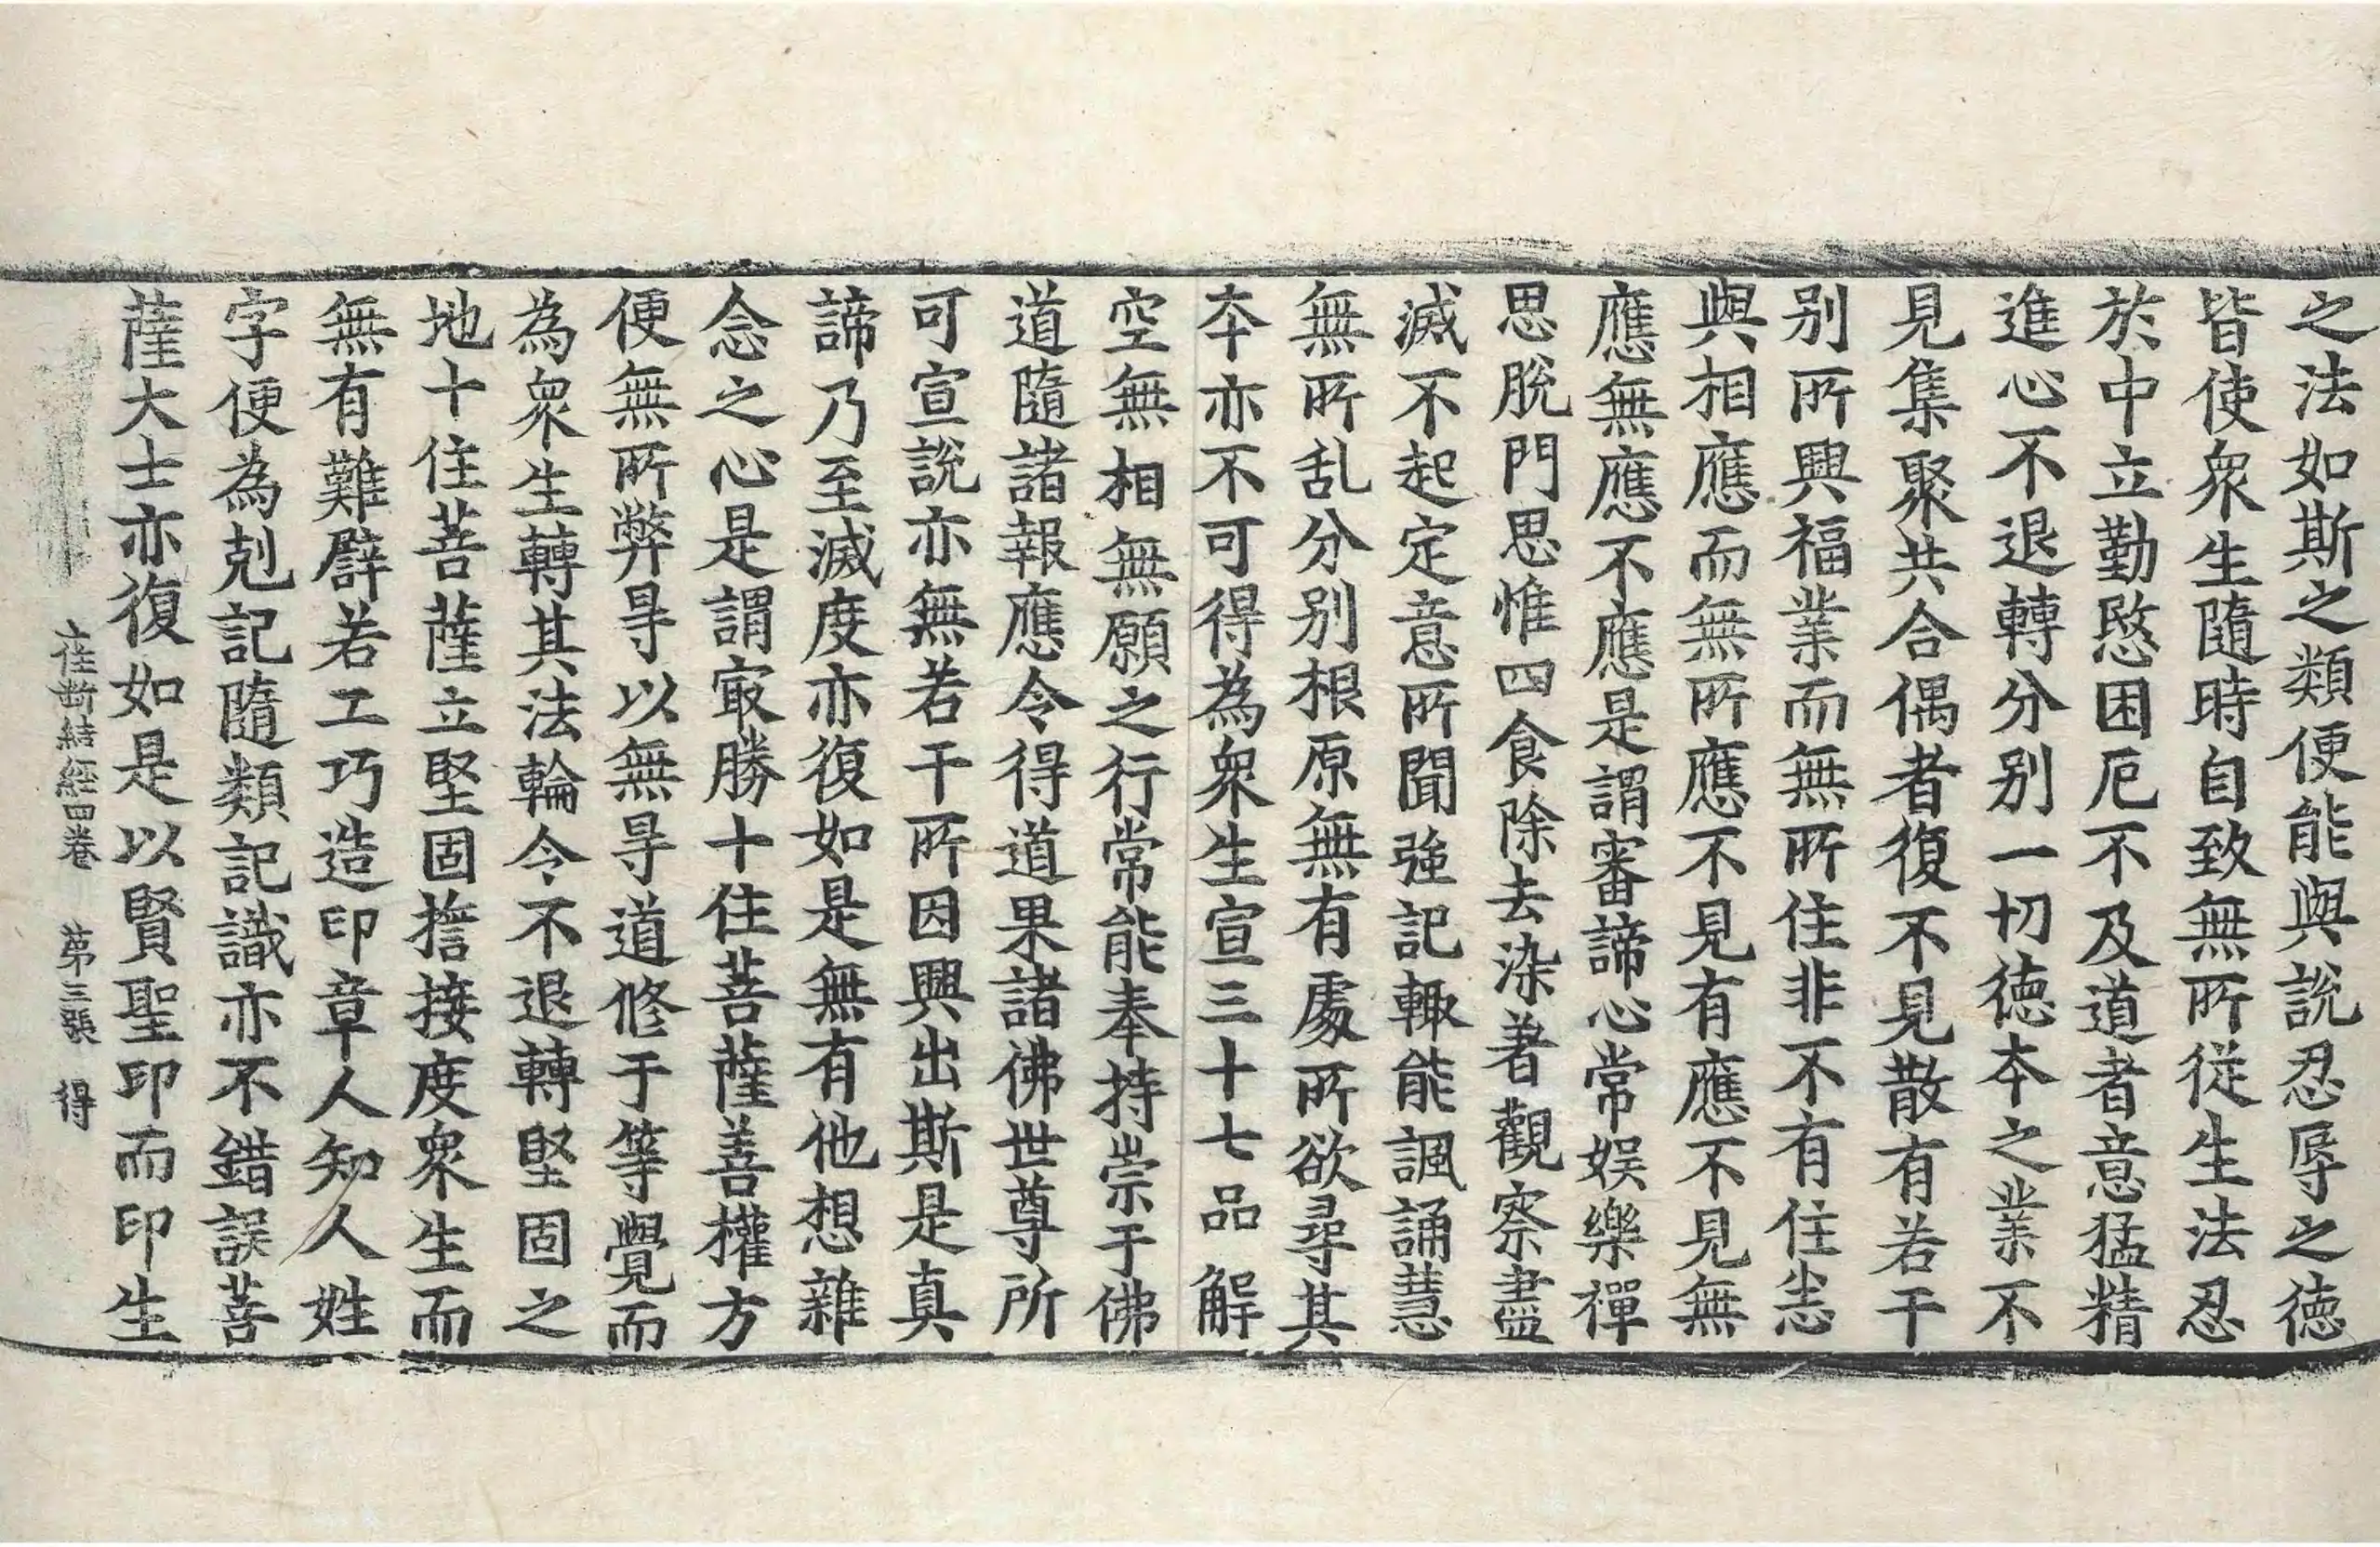 之法如斯之類便能與說忍辱之德
皆使衆生隨時自致無所從生法忍
於中立勤愍困厄不及道者意猛精
進心不退轉分別一切德本之業不
見集聚共合偶者復不見散有若干
別所興福業而無所住非不有住恙
與相應而無所應不見有應不見無
應無應不應是謂審諦心常娛樂禪
思脫門思惟四食除去染著觀察盡
滅不起定意所聞強記輙能諷誦慧
無所乱分別根原無有處所欲尋其
本亦不可得為衆生宣三十七品解
空無相無願之行常能奉持崇于佛
道隨諸報應令得道果諸佛世尊所
可宣說亦無若干所因興出斯是真
諦乃至滅度亦復如是無有他想雜
念之心是謂㝡勝十住菩薩善權方
便無所弊㝵以無㝵道修于等覺而
為衆生轉其法輪令不退轉堅固之
地十住菩薩立堅固擔接度衆生而
無有難譬若工巧造印章人知人姓
字便為剋記隨類記識亦不錯誤菩
薩大士亦復如是以賢聖印而印生
住斷結經四卷 第三張 得